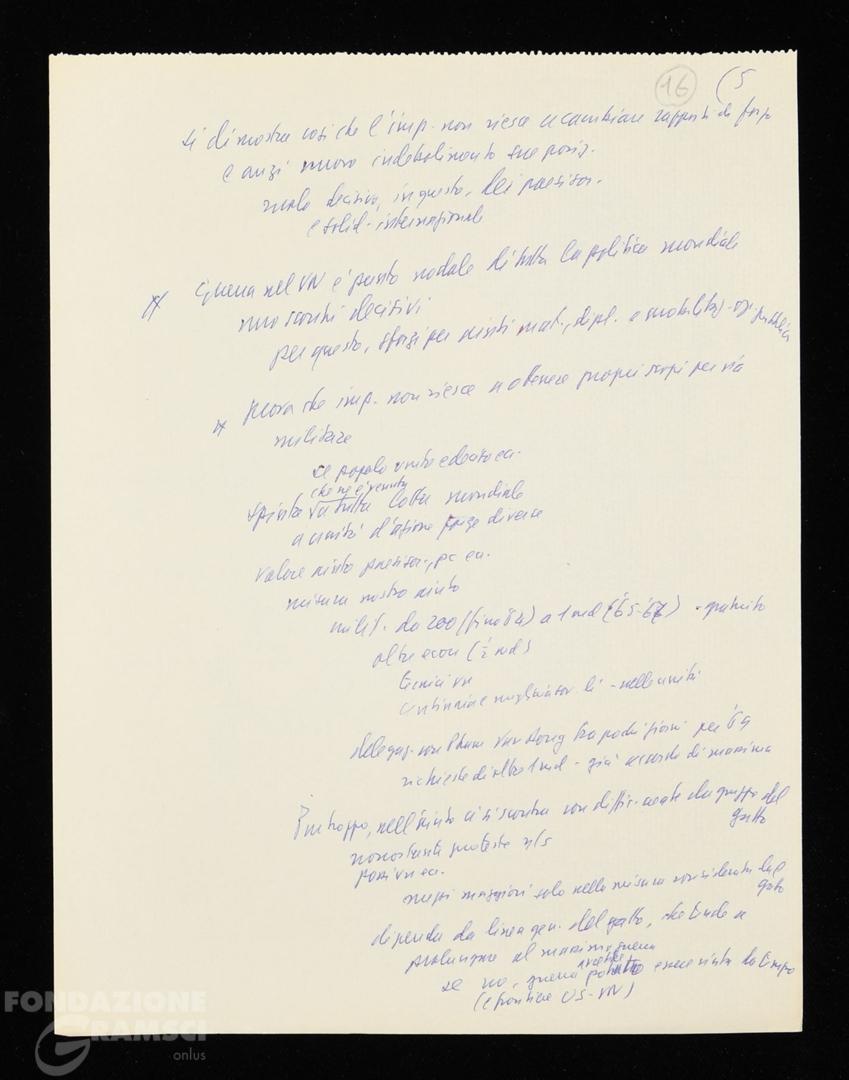 16 (5
si dimostra così che l'imp. non riesce a cambiare rapporti di forza
e anzi nuovo indebolimento sue posiz.
ruolo decisivo, in questo, dei paesi soc.
e solid. internazionale
* Guerra nel VN è punto nodale di tutta la politica mondiale
uno scontri decisivi
per questo, sforzi per aiuti mat., dipl. e mobilitaz. op. pubblica
* prova che imp. non riesce a ottenere propri scopi per via
militare
se popolo unito e deciso ecc.
che ne è venuta
spinta a tutta lotta mondiale
a unità d'azione forze diverse
valore aiuto paesi soc., pc ecc.
misura nostro aiuto
milit. da 200 (fino 64) a 1 md ('65-'67) - gratuito
altre econ (½ md)
tecnici vn
delegaz. con Pham Van Dong tra pochi giorni per '69
richieste di altro 1 md - già accordo di massima
Purtroppo, nell'aiuto ci si scontra con diffic. create da gruppo del
gatto
nonostante proteste n/s
passi vn ecc.
mezzi maggiori solo nella misura consideriate da
gatto
dipende da linea gen. del gatto, che tende a
prolungare al massimo guerra
se no, guerra potrebbe essere vinta da tempo
(è frontiera US-VN)
FONDAZIONE
GRAMSCI
onlus